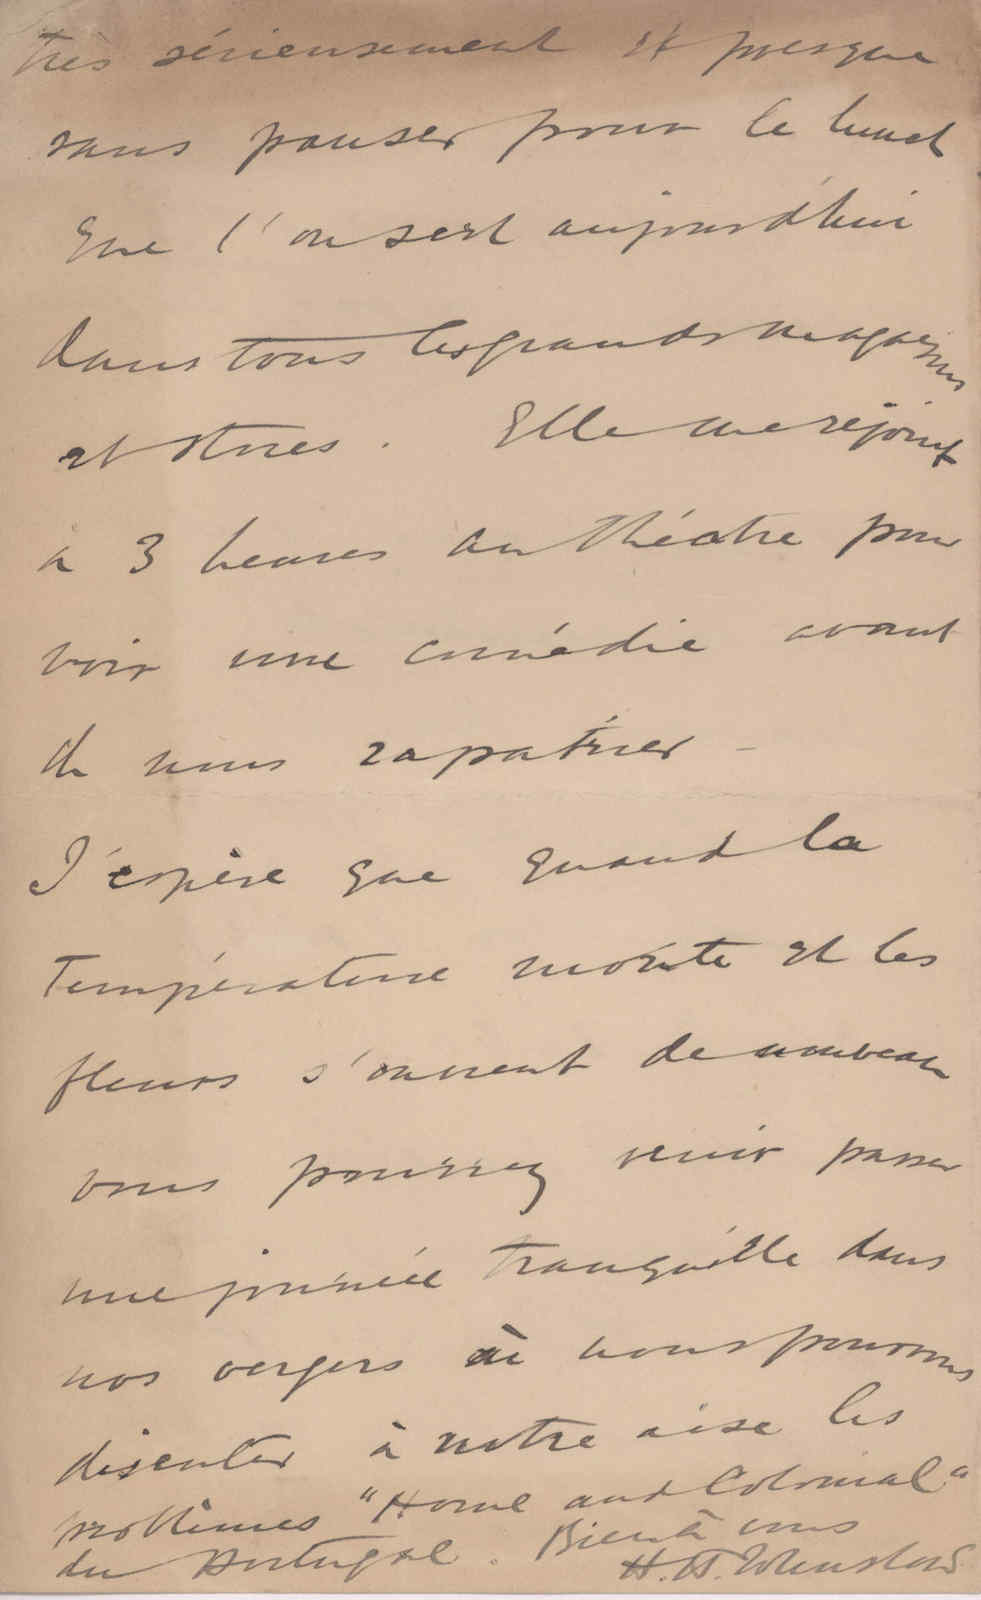 très sérieusement et presque
sans pauser pour le lunch
que l'on sert aujourd'hui
dans tous les grands magasins
et stores. Elle me rejoint
à 3 heures au théâtre pour
voir une comédie avant
de nous rapatrier –
J'espère que quand la
température monte et les
fleurs s'ouvrent de nouveau
vous pourrez venir passer
une journée tranquille dans
nos vergers où nous pourrons
discuter à notre aise les
problèmes "Home and Colonial"
du Portugal. Bien à vous
H. H.